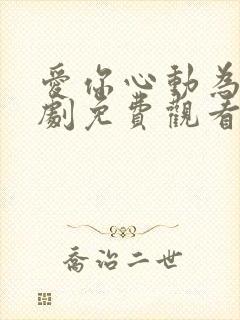 愛你心動為
劇免費觀看
喬治二世